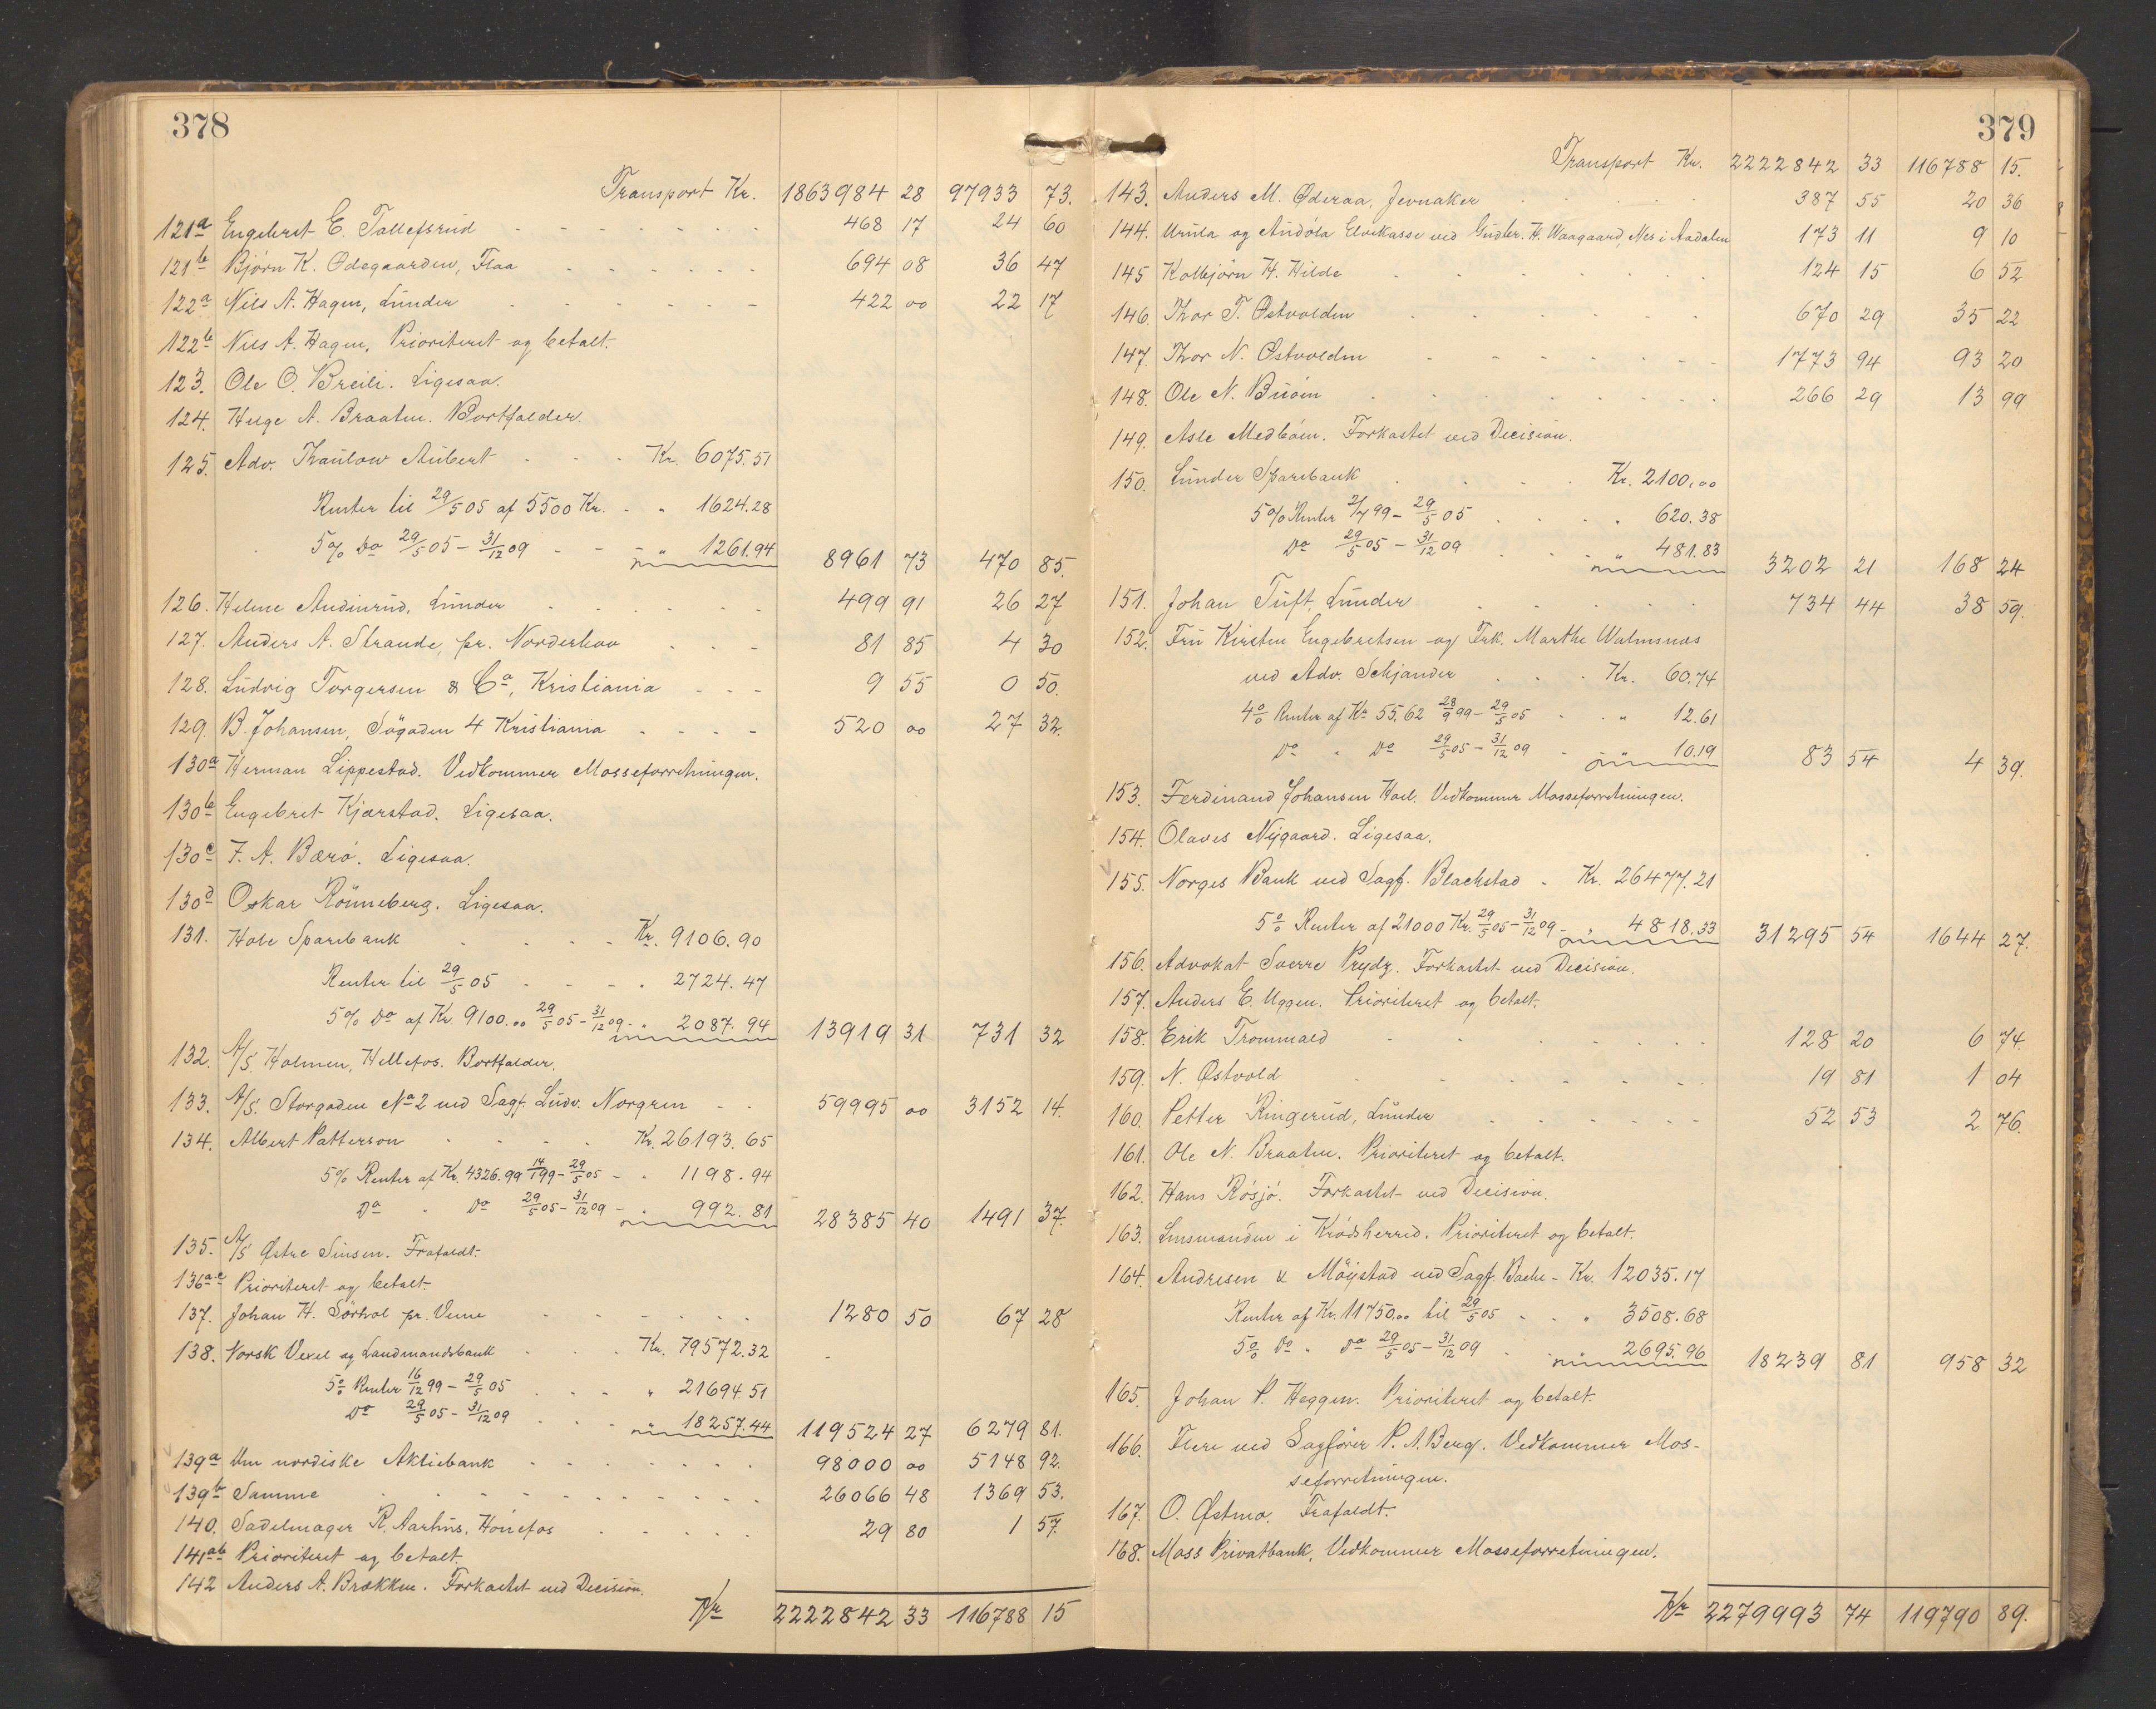 378
Transport Kr. 1863984 28 97933 73.
121a Engebret E. Tollefsrud 468 17 24 60
121b Bjørn K. Ødegaarden, Flaa 694 08 36 47
122a Nils A. Hagen, Lunder 422 00 22 17
122b Nils A. Hagen, Prioriteret og betalt.
123. Ole O. Breili. Ligesaa.
124. Helge A. Braaten. Bortfalder.
125. Adv. Thaulow Aubert Kr. 6075.51
Renter til 29/5 05 af 5500 Kr. " 1624.28
5% Do 29/5 05 - 31/12 09 " 1261.94 8961 73 470 85.
126. Helene Audinrud, Lunder 499 91 26 27
127. Anders A. Strande, pr. Norderhov 81 85 4 30
128. Ludvig Torgersen & Co, Kristiania 9 55 0 50.
129. B. Johansen, Søgaden 4 Kristiania 520 00 27 32.
130a Herman Lippestad. Vedkommer Mosseforretningen.
130b Engebret Kjærstad. Ligesaa.
130c F. A. Bærø. Ligesaa.
130d Oskar Rönneberg. Ligesaa.
131. Hole Sparebank Kr. 9106.90
Renter til 29/5 05 " 2724.47
5% Do af Kr. 9100.00 29/5 05 - 31/12 09 " 2087.94 13919 31 731 32
132. A/S Holmen, Hellefos. Bortfalder.
133. A/S. Storgaden No 2 ved Sagf. Ludv. Norgren 59995 00 3152 14.
134. Albert Patterson Kr. 26193.65
5% Renter af Kr. 4326.99 14/1 99 - 29/5 05 " 1198.94
Do " Do 29/5 05 - 31/12 09 " 992.81 28385 40 1491 37.
135. A/S Østre Sinsen. Frafaldt.
136a-e Prioriteret og betalt.
137. Johan H. Sørhol pr. Veme 1280 50 67 28
138. Norsk Vexel og Landmandsbank Kr. 79572.32
5% Renter 16/12 99 - 29/5 05 " 21694.51
Do 29/5 05 - 31/12 09 " 18257.44 119524 27 6279 81.
139a Den nordiske Aktiebank 98000 00 5148 92.
139b Samme 26066 48 1369 53.
140. Sadelmager R. Aarhus, Hønefos 29 80 1 57.
141ab Prioriteret og betalt.
142 Anders A. Brækken. Forkastet ved Decision.
Kr 2222842 33 116788 15
379
Transport Kr. 2222842 33 116788 15.
143. Anders M. Øderaa, Jevnaker 387 55 20 36
144. Urula og Andøla Elvekasse ved Gudbr. H. Waagaard, Nes i Aadalen 173 11 9 10
145 Kolbjørn H. Hilde 124 15 6 52
146. Thor T. Østvolden 670 29 35 22
147. Thor N. Østvolden 1773 94 93 20
148. Ole N. Buøen 266 29 13 99
149. Asle Medbøen. Forkastet ved Decision.
150. Lunder Sparebank Kr. 2100.00
5% Renter 2/7 99 - 29/5 05 " 620.38
Do 29/5 05 - 31/12 09 " 481.83 3202 21 168 24
151. Johan Tuft, Lunder 734 44 38 59.
152. Fru Kirsten Engebretsen og Frk. Marthe Walmsnæs
ved Adv. Schjander Kr. 60.74
4% Renter af Kr 55.62 28/9 99 - 29/5 05 " 12.61
Do " Do 29/5 05 - 31/12 09 " 10.19 83 54 4 39.
153. Ferdinand Johansen Hoel. Vedkommer Mosseforretningen.
154. Olaves Nygaard. Ligesaa.
155. Norges Bank ved Sagf. Blackstad Kr. 26477.21
5% Renter af 21000 Kr. 29/5 05 - 31/12 09 " 4818.33 31295 54 1644 27.
156. Advokat Sverre Prydz. Forkastet ved Decision.
157. Anders E. Uggen. Prioriteret og betalt.
158. Erik Trommald 128 20 6 74.
159. N. Østvold 19 81 1 04
160. Petter Ringerud, Lunder 52 53 2 76.
161. Ole N. Braaten. Prioriteret og betalt.
162. Hans Røsjø. Forkastet ved Decision.
163. Lensmanden i Krødsherred. Prioriteret og betalt.
164. Andresen & Møystad ved Sagf. Bache Kr. 12035.17
Renter af Kr. 11750.00 til 29/5 05 " 3508.68
5% Do " Do 29/5 05 - 31/12 09 " 2695.96 18239 81 958 32
165. Johan P. Heggen. Prioriteret og betalt.
166. Flere ved Sagfører P. A. Berg. Vedkommer Mos-
seforretningen.
167. O. Østmo. Frafaldt.
168. Moss Privatbank, Vedkommer Mosseforretningen.
Kr 2279993 74 119790 89.